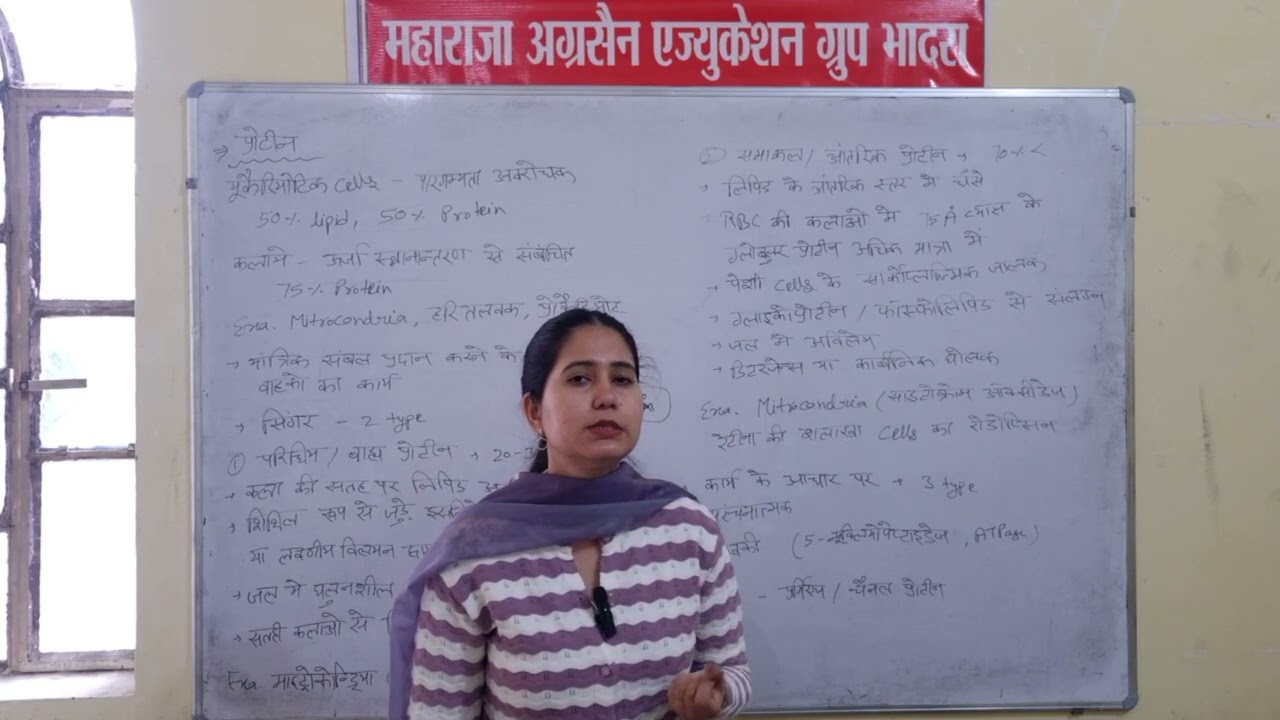 महाराजा अग्रसैन एज्युकेशन ग्रुप भादरा
→ प्रोटीन
यूकैरियोटिक cells -
50% lipid, 50% Protein
कलामे - ऊर्जा स्थानान्तरण से संबंधित
75% Protein
Exa. Mitrocondria, हरितलवक,
→ यांत्रिक संबल प्रदान करने के
वाहको का कार्य
→ सिंगर - 2 type
① परिधिय / बाह्य प्रोटीन → 20-3
→ कला की सतह पर लिपिड
→ शिथिल रूप से जुड़े
या लवणीय विलयन
→ जल मे घुलनशील
→ सतही कलाओ से
Exa. माइट्रोकोन्ड्रिया
② समाकल / आंतरिक प्रोटीन → 70% <
→ लिपिड के आंतरिक स्तर मे धँसे
→ RBC की कलाओ मे 75 Å व्यास के
ग्लोबुलर प्रोटीन अधिक मात्रा में
→ पेशी cells के सार्कोप्लाज्मिक जालक
→ ग्लाइकोप्रोटीन / फॉस्फोलिपिड से संलग्न
→ जल मे अविलेय
→ डिटरजेन्स या कार्बनिक घोलक
Exa. Mitrocondria (साइटोक्रोम ऑक्सीडेज)
रेटीना की शलाखा cells का रोडोप्सिन
कार्य के आधार पर → 3 type
संरचनात्मक
(5-न्यूक्लियोपेप्टाइडेज, ATPase)
- / चैनल प्रोटीन